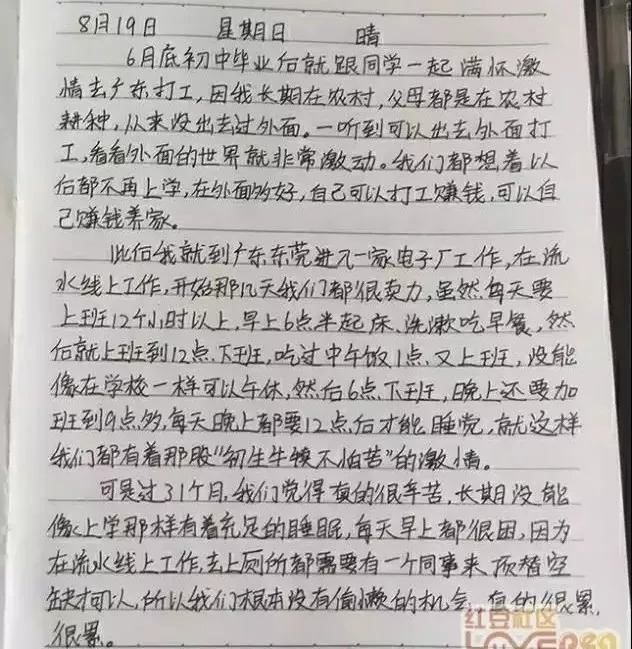 8月19日 星期日 晴
6月底初中毕业后就跟同学一起满怀激
情去广东打工,因我长期在农村,父母都是在农村
耕种,从来没出去过外面。一听到可以出去外面打
工,看看外面的世界就非常激动。我们都想着以
后都不再上学,在外面多好,自己可以打工赚钱,可以自
己赚钱养家。
此后我就到广东东莞进入一家电子厂工作,在流
水线上工作,开始那几天我们都很卖力,虽然每天要
上班12个小时以上,早上6点半起床、洗漱吃早餐,然
后就上班到12点下班,吃过中午饭1点又上班,没能
像在学校一样可以午休,然后6点下班,晚上还要加
班到9点多,每天晚上都要12点后才能睡觉,就这样
我们都有着那股“初生牛犊不怕苦”的激情。
可是过了1个月,我们觉得真的很辛苦,长期没能
像上学那样有着充足的睡眠,每天早上都很困,因为
在流水线上工作,去上厕所都需要有一个同事来顶替空
缺才可以,所以我们根本没有偷懒的机会,真的很累,
很累。
红豆社区